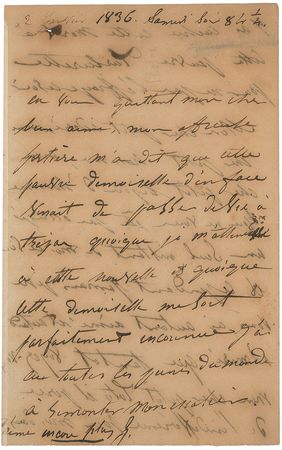 2 janvier 1836. Samedi soir 8 h ¼.
en vous quittant mon cher
bien-aimé mon affreuse
portière m'a dit que cette
pauvre demoiselle d'en face
venait de passer de vie à
trépas quoique je m'attendisse
à cette nouvelle et quoique
cette demoiselle me soit
parfaitement inconnue j'ai
eu toutes les peines du monde
à surmonter mon
encore plus J.